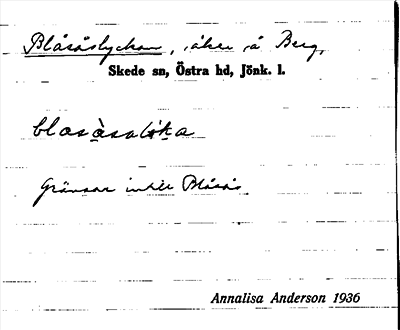 Blåsåslyckan, åker å Berg,
Skede sn, Östra hd, Jönk. l.
blɑsàsalẙka
Gränsar intill Blåsås
Annalisa Anderson 1936